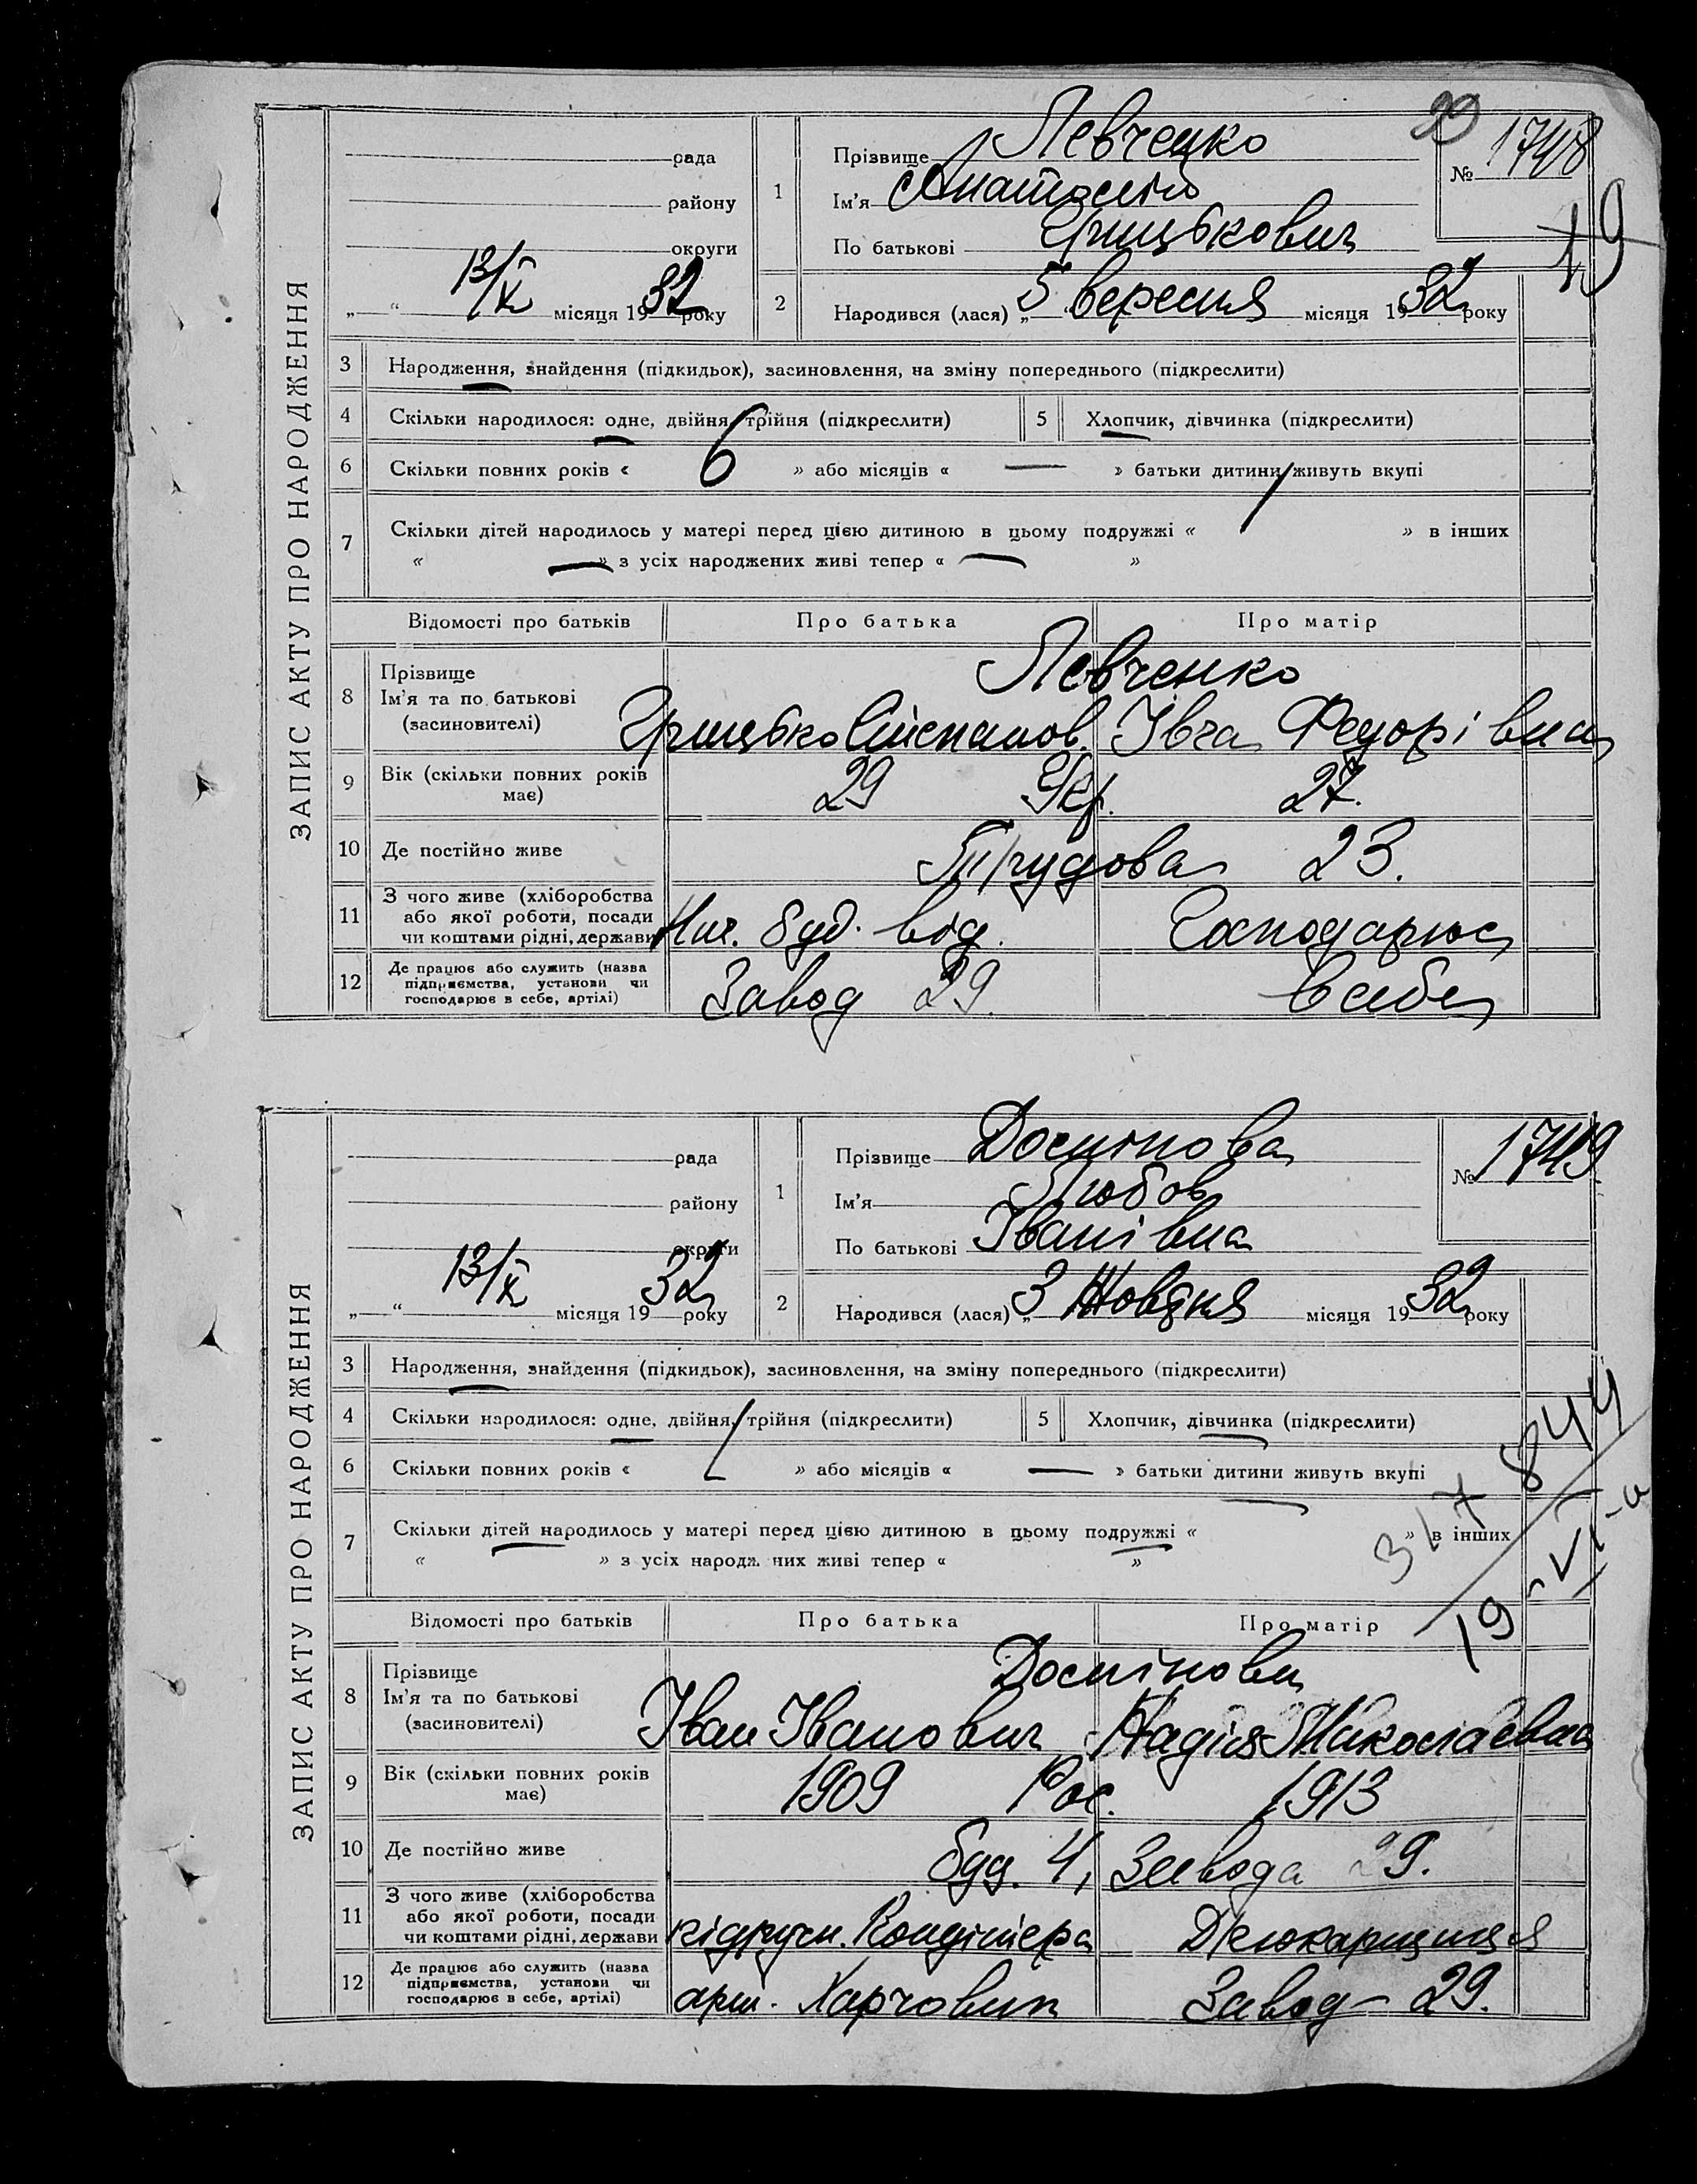 ЗАПИС АКТУ ПРО НАРОДЖЕННЯ
рада
району
округи
13/X місяця 1932 року
1
Прізвище Левченко
Ім'я Анатолій
По батькові Грицькович
№ 1748
19
2
Народився (лася) „5 вересня місяця 1932 року
3 Народження, знайдення (підкидьок), засиновлення, на зміну попереднього (підкреслити)
4 Скільки народилося: одне, двійня, трійня (підкреслити) 5 Хлопчик, дівчинка (підкреслити)
6 Скільки повних років « 6 » або місяців « — » батьки дитини живуть вкупі
7 Скільки дітей народилось у матері перед цією дитиною в цьому подружжі « 1 » в інших
« — » з усіх народжених живі тепер « — »
Відомості про батьків Про батька Про матір
8 Прізвище Левченко
Ім'я та по батькові
(засиновителі) Грицько Степанов. Івга Федорівна
9 Вік (скільки повних років має) 29 Укр. 27.
10 Де постійно живе Трудова 23.
11 З чого живе (хліборобства або якої роботи, посади чи коштами рідні, держави Нач. буд. від. Господарює
12 Де працює або служить (назва підприємства, установи чи господарює в себе, артілі) Завод 29. в себе
ЗАПИС АКТУ ПРО НАРОДЖЕННЯ
рада
району
округи
13/X місяця 1932 року
1
Прізвище
Ім'я Любов
По батькові Іванівна
№ 1749
2
Народився (лася) „3 Жовтня місяця 1932 року
3 Народження, знайдення (підкидьок), засиновлення, на зміну попереднього (підкреслити)
4 Скільки народилося: одне, двійня, трійня (підкреслити) 5 Хлопчик, дівчинка (підкреслити)
6 Скільки повних років « 1 » або місяців « — » батьки дитини живуть вкупі
7 Скільки дітей народилось у матері перед цією дитиною в цьому подружжі « » в інших
« » з усіх народж них живі тепер « »
Відомості про батьків Про батька Про матір
8 Прізвище
Ім'я та по батькові
(засиновителі) Іван Іванович Надія Миколаєвна
9 Вік (скільки повних років має) 1909 Рос. 1913
10 Де постійно живе буд. 4, Завода 29.
11 З чого живе (хліборобства або якої роботи, посади чи коштами рідні, держави підручн. Кондітера Друкарщиця
12 Де працює або служить (назва підприємства, установи чи господарює в себе, артілі) арт. Харчовик Завод – 29.